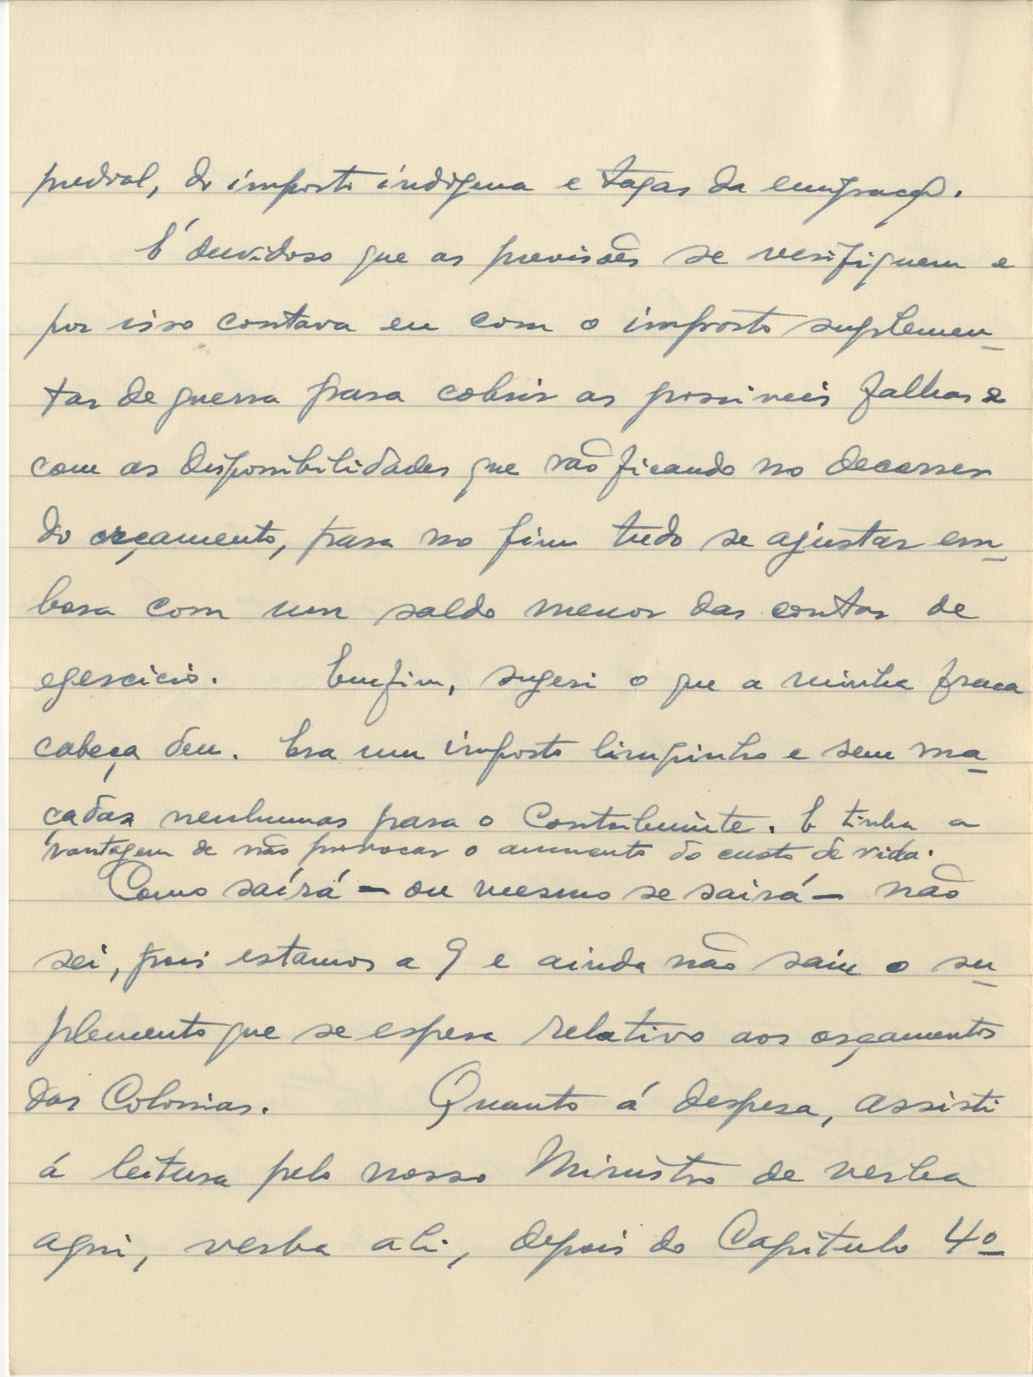 predial, do imposto indígena e taxas da emigração.
É duvidoso que as previsões se verifiquem e
por isso contava eu com o imposto suplemen-
tar de guerra para cobrir as possiveis falhas e
com as disponibilidades que vão ficando no decorrer
do orçamento, para no fim tudo se ajustar em-
bora com um saldo menor das contas de
exercicio. Emfim, sugeri o que a minha fraca
cabeça deu. Era um imposto limpinho e sem ma-
çadas nenhumas para o Contribuinte. E tinha a
vantagem de não provocar o aumento do custo de vida.
Como saírá - ou mesmo se sairá - não
sei, pois estamos a 9 e ainda não saiu o su-
plemento que se espera relativo aos orçamentos
das Colonias. Quanto á despesa, assisti
á leitura pelo nosso Ministro de verba
aqui, verba ali, depois do Capítulo 4º